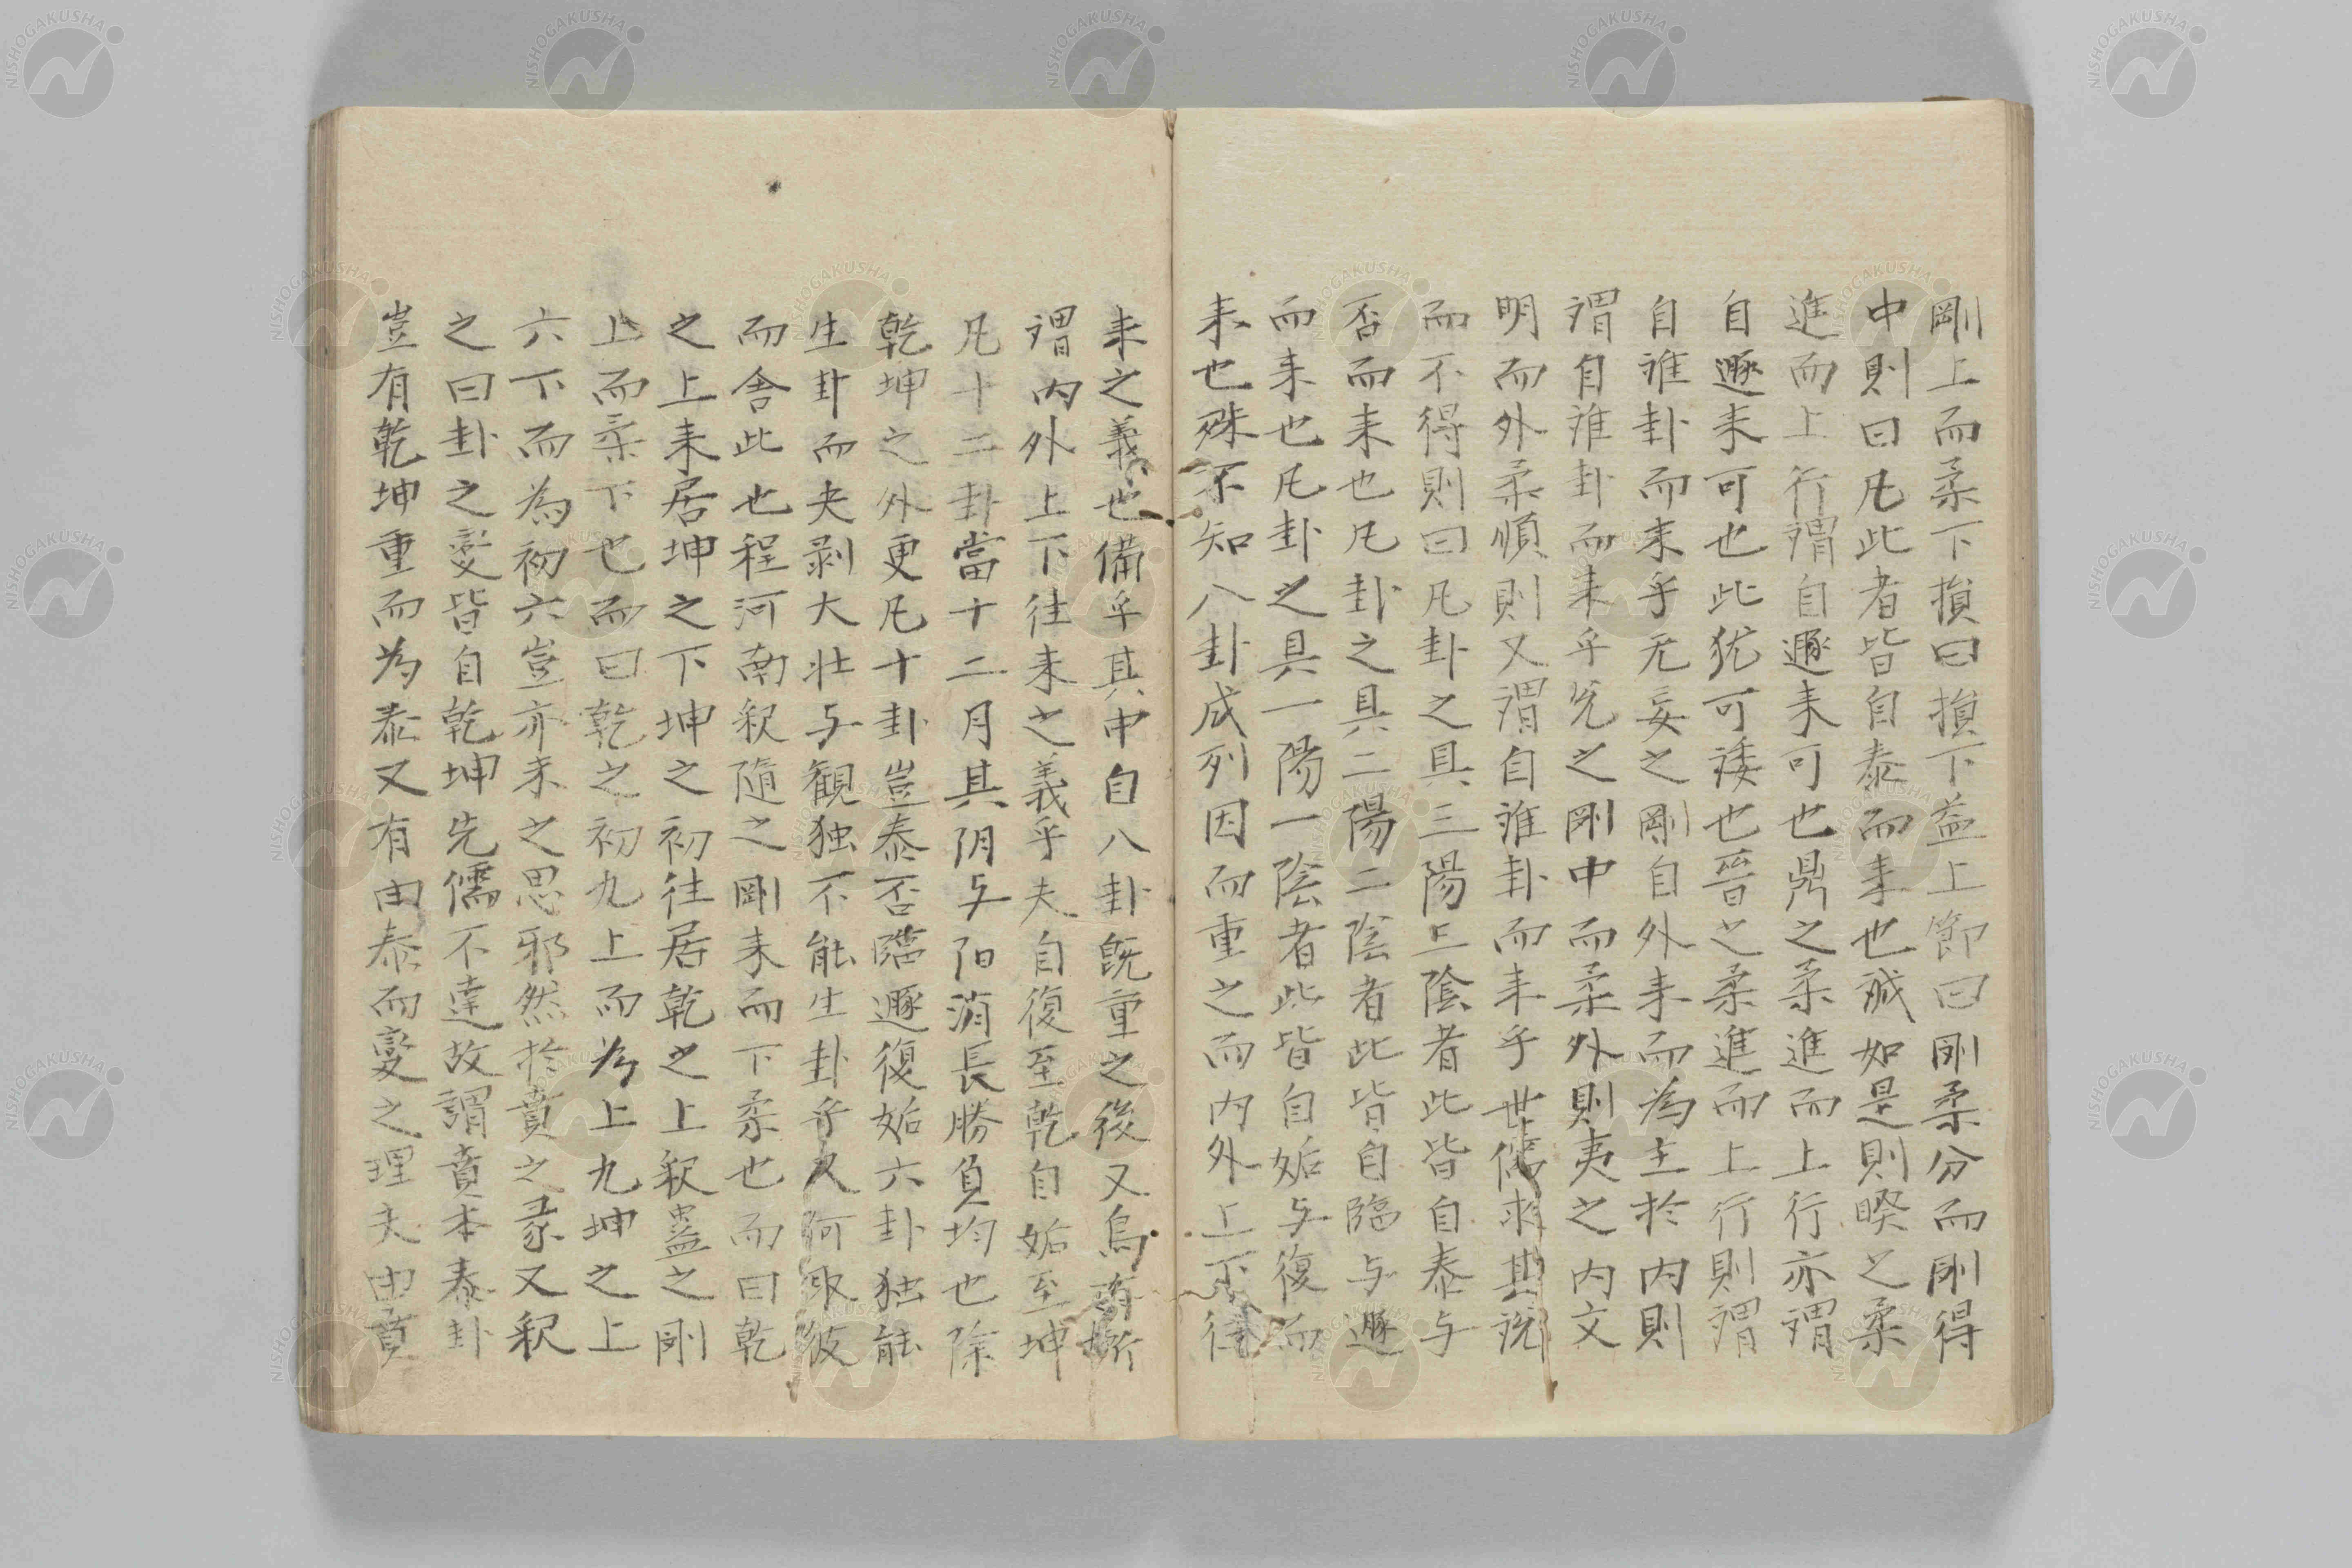 剛上而柔下損曰損下益上節曰剛柔分而剛得
中則曰凡此者皆自泰而来也誠如是則睽之柔
進而上行謂自遯来可也鼎之柔進而上行亦謂
自遯来可也此犹可諉也晉之柔進而上行則謂
自誰卦而来乎无妄之剛自外来而為主於内則
謂自誰卦而来乎兌之剛中而柔外則夷之内文
明而外柔順則又謂自誰卦而来乎世儒求其説
而不得則曰凡卦之具三陽三陰者此皆自泰与
否而来也凡卦之具二陽二陰者此皆自臨与遯
而来也凡卦之具一陽一陰者此皆自姤与復而
来也殊不知八卦成列因而重之而内外上下往
来之義也備乎其中自八卦既重之後又烏有所
謂内外上下往来之義乎夫自復至乾自姤至坤
凡十二卦當十二月其阴与阳消長勝負均也除
乾坤之外更凡十卦豈泰否臨遯復姤六卦独能
生卦而夬剥大壮与観独不能生卦乎又何取彼
而舎此也程河南釈随之剛来而下柔也而曰乾
之上来居坤之下坤之初往居乾之上釈蠱之剛
上而柔下也而曰乾之初九上而為上九坤之上
六下而為初六豈亦未之思邪然於賁之彖又釈
之曰卦之変皆自乾坤先儒不達故謂賁本泰卦
豈有乾坤重而為泰又有由泰而変之理夫由賁